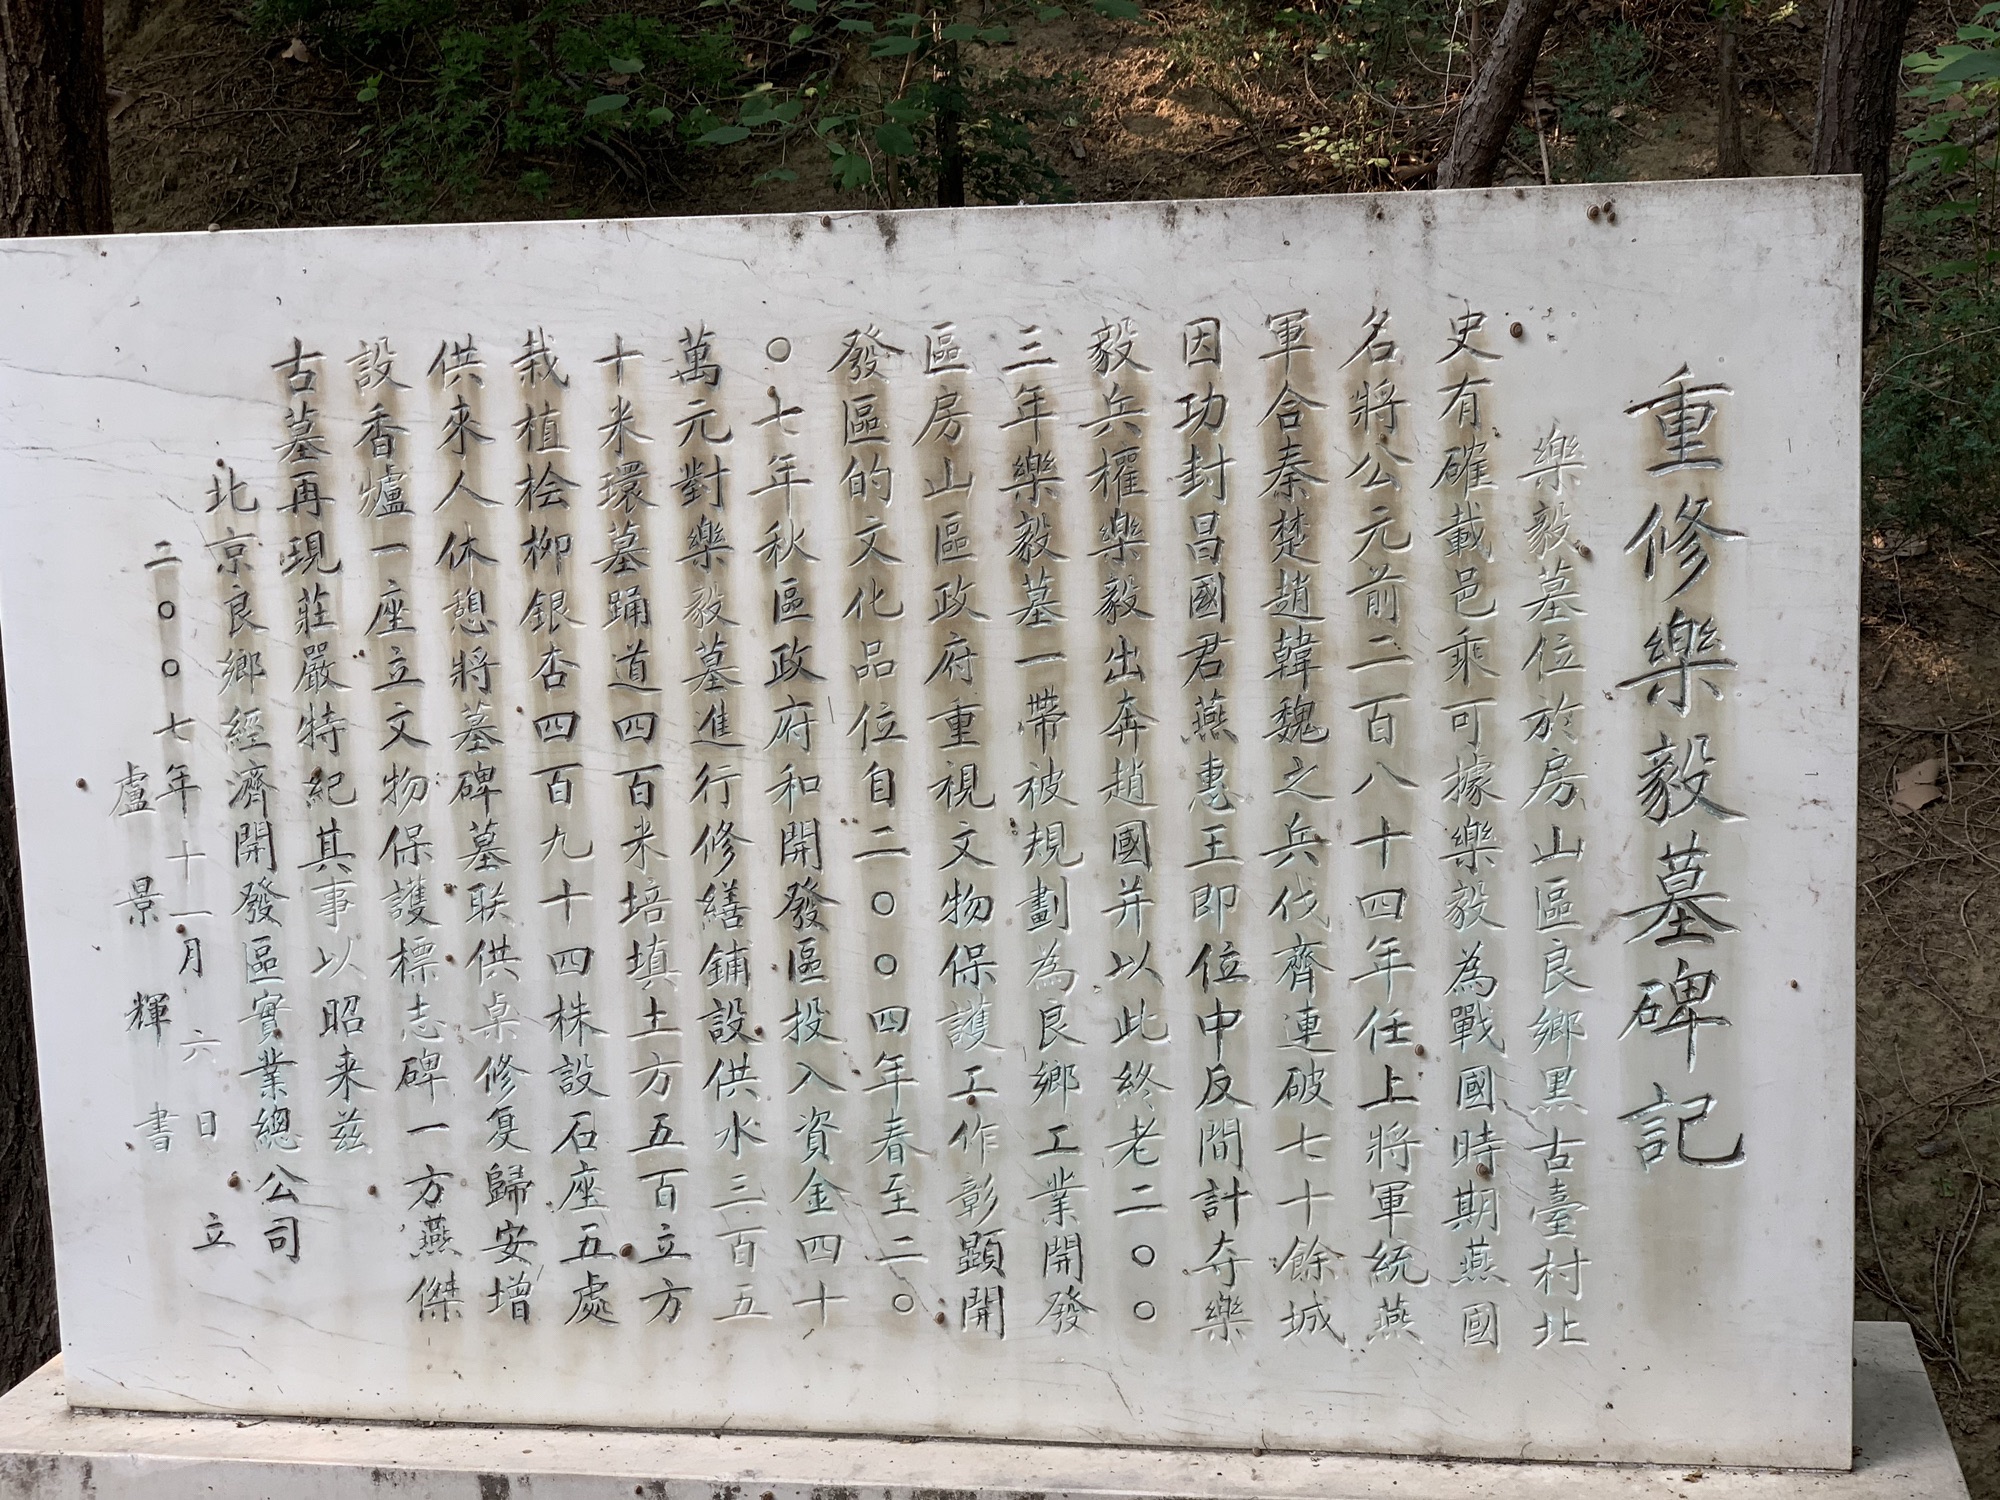 重修樂毅墓碑記
樂毅墓位於房山區良鄉黑古臺村北
史有確載邑乘可據樂毅為戰國時期燕國
名將公元前二百八十四年任上將軍統燕
軍合秦楚趙韓魏之兵伐齊連破七十餘城
因功封昌國君燕惠王即位中反間計夺樂
毅兵權樂毅出奔趙國并以此終老二〇〇
三年樂毅墓一帶被規劃為良鄉工業開發
區房山區政府重視文物保護工作彰顕開
發區的文化品位自二〇〇四年春至二〇
〇七年秋區政府和開發區投入資金四十
萬元對樂毅墓進行修繕鋪設供水三百五
十米環墓踊道四百米培填土方五百立方
栽植桧柳銀杏四百九十四株設石座五處
供來人休憩將墓碑墓联供桌修复歸安增
設香爐一座立文物保護標志碑一方燕傑
古墓再現莊嚴特紀其事以昭来兹
北京良鄉經濟開發區實業總公司
二〇〇七年十一月六日立
盧景輝書